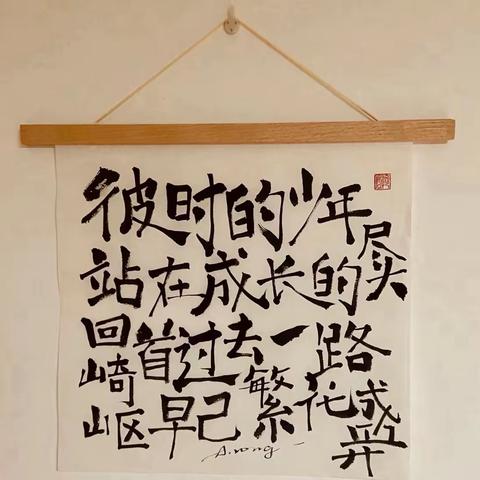 彼时的少年
站在成长的尽头
回首过去一路
崎岖早已繁花盛开